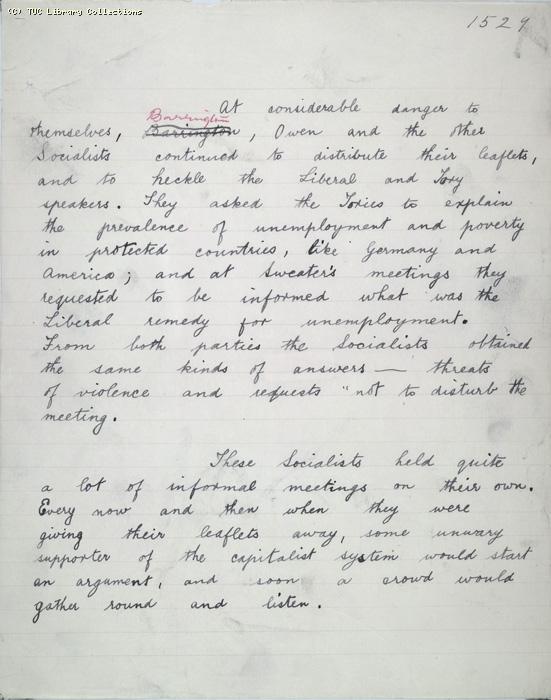 (C) TUC Library Collections
1529
At considerable danger to
Barrington
themselves, Barrington, Owen and the other
Socialists continued to distribute their leaflets,
and to heckle the Liberal and Tory
speakers. They asked the Tories to explain
the prevalence of unemployment and poverty
in protected countries, like Germany and
America; and at Sweater's meetings they
requested to be informed what was the
Liberal remedy for unemployment.
From both parties the Socialists obtained
the same kinds of answers — threats
of violence and requests "not to disturb the
meeting.
These Socialists held quite
a lot of informal meetings on their own.
Every now and then when they were
giving their leaflets away, some unwary
supporter of the capitalist system would start
an argument, and soon a crowd would
gather round and listen.